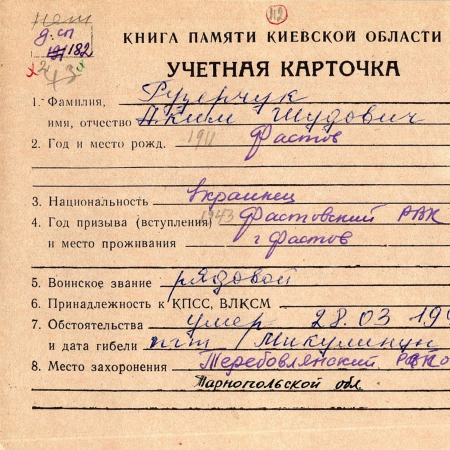 нет
112
д. сп
191182
КНИГА ПАМЯТИ КИЕВСКОЙ ОБЛАСТИ
УЧЕТНАЯ КАРТОЧКА
1. Фамилия,
имя, отчество Аким Шудович
2. Год и место рожд. 1911 Фастов
3. Национальность украинец
4. Год призыва (вступления) 1943 Фастовский РВК
и место проживания г Фастов
5. Воинское звание рядовой
6. Принадлежность к КПСС, ВЛКСМ
7. Обстоятельства умер 28.03 19
и дата гибели пгт Микулинцы
8. Место захоронения Теребовлянский
Тарнопольской обл